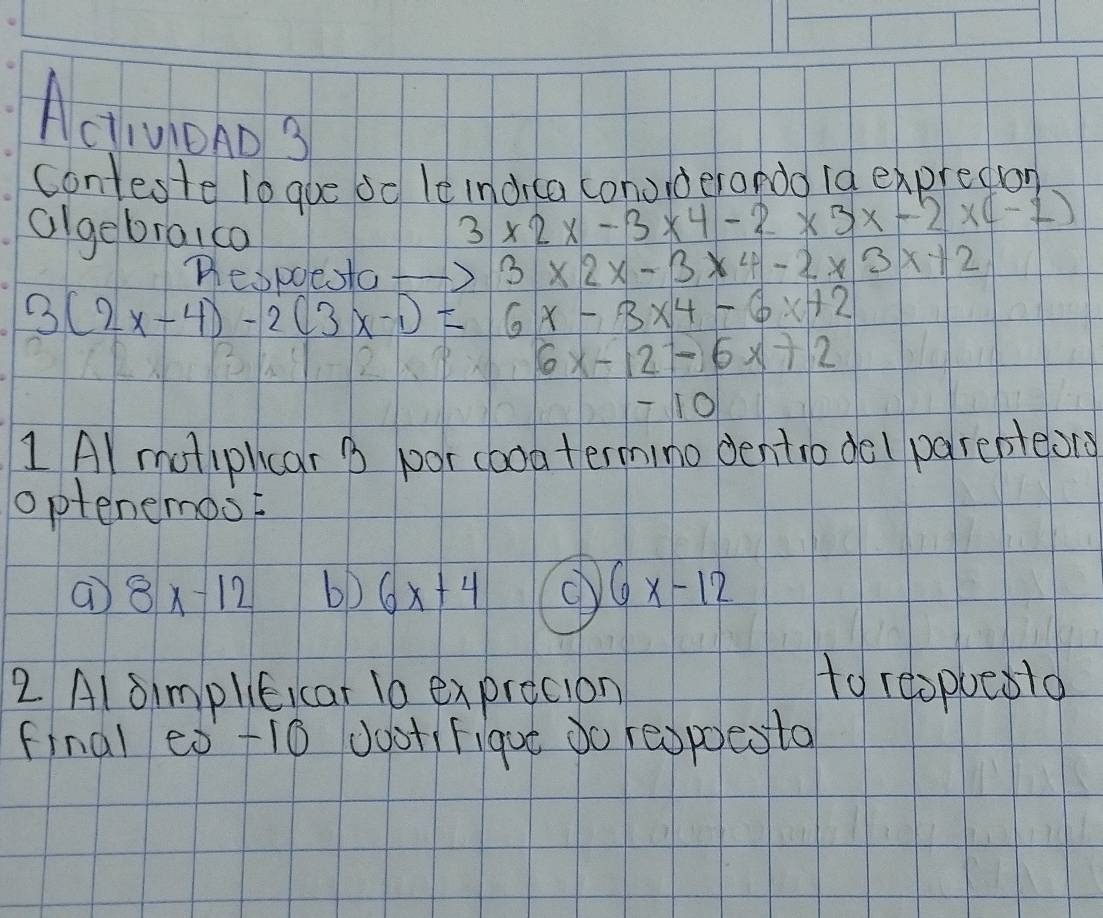 ActiviDAD 3
conteste lo que se le indica considerando la exprecion
algebraica 3 x 2x - 3 x 4 - 2 x 3x - 2 x (-1)
Respuesta → 3 x 2x - 3 x 4 - 2 x 3x + 2
3(2x-4) - 2(3x-1) = 6x - 3x4 - 6x + 2
6x - 12 - 6x + 2
-10
1 Al motiplicar 3 por cada termino dentro del parentesis
optenemos:
a) 8x-12 b) 6x+4 c) 6x-12
2 Al simplificar la exprecion tu respuesta
final es -10 Justifique su respuesta